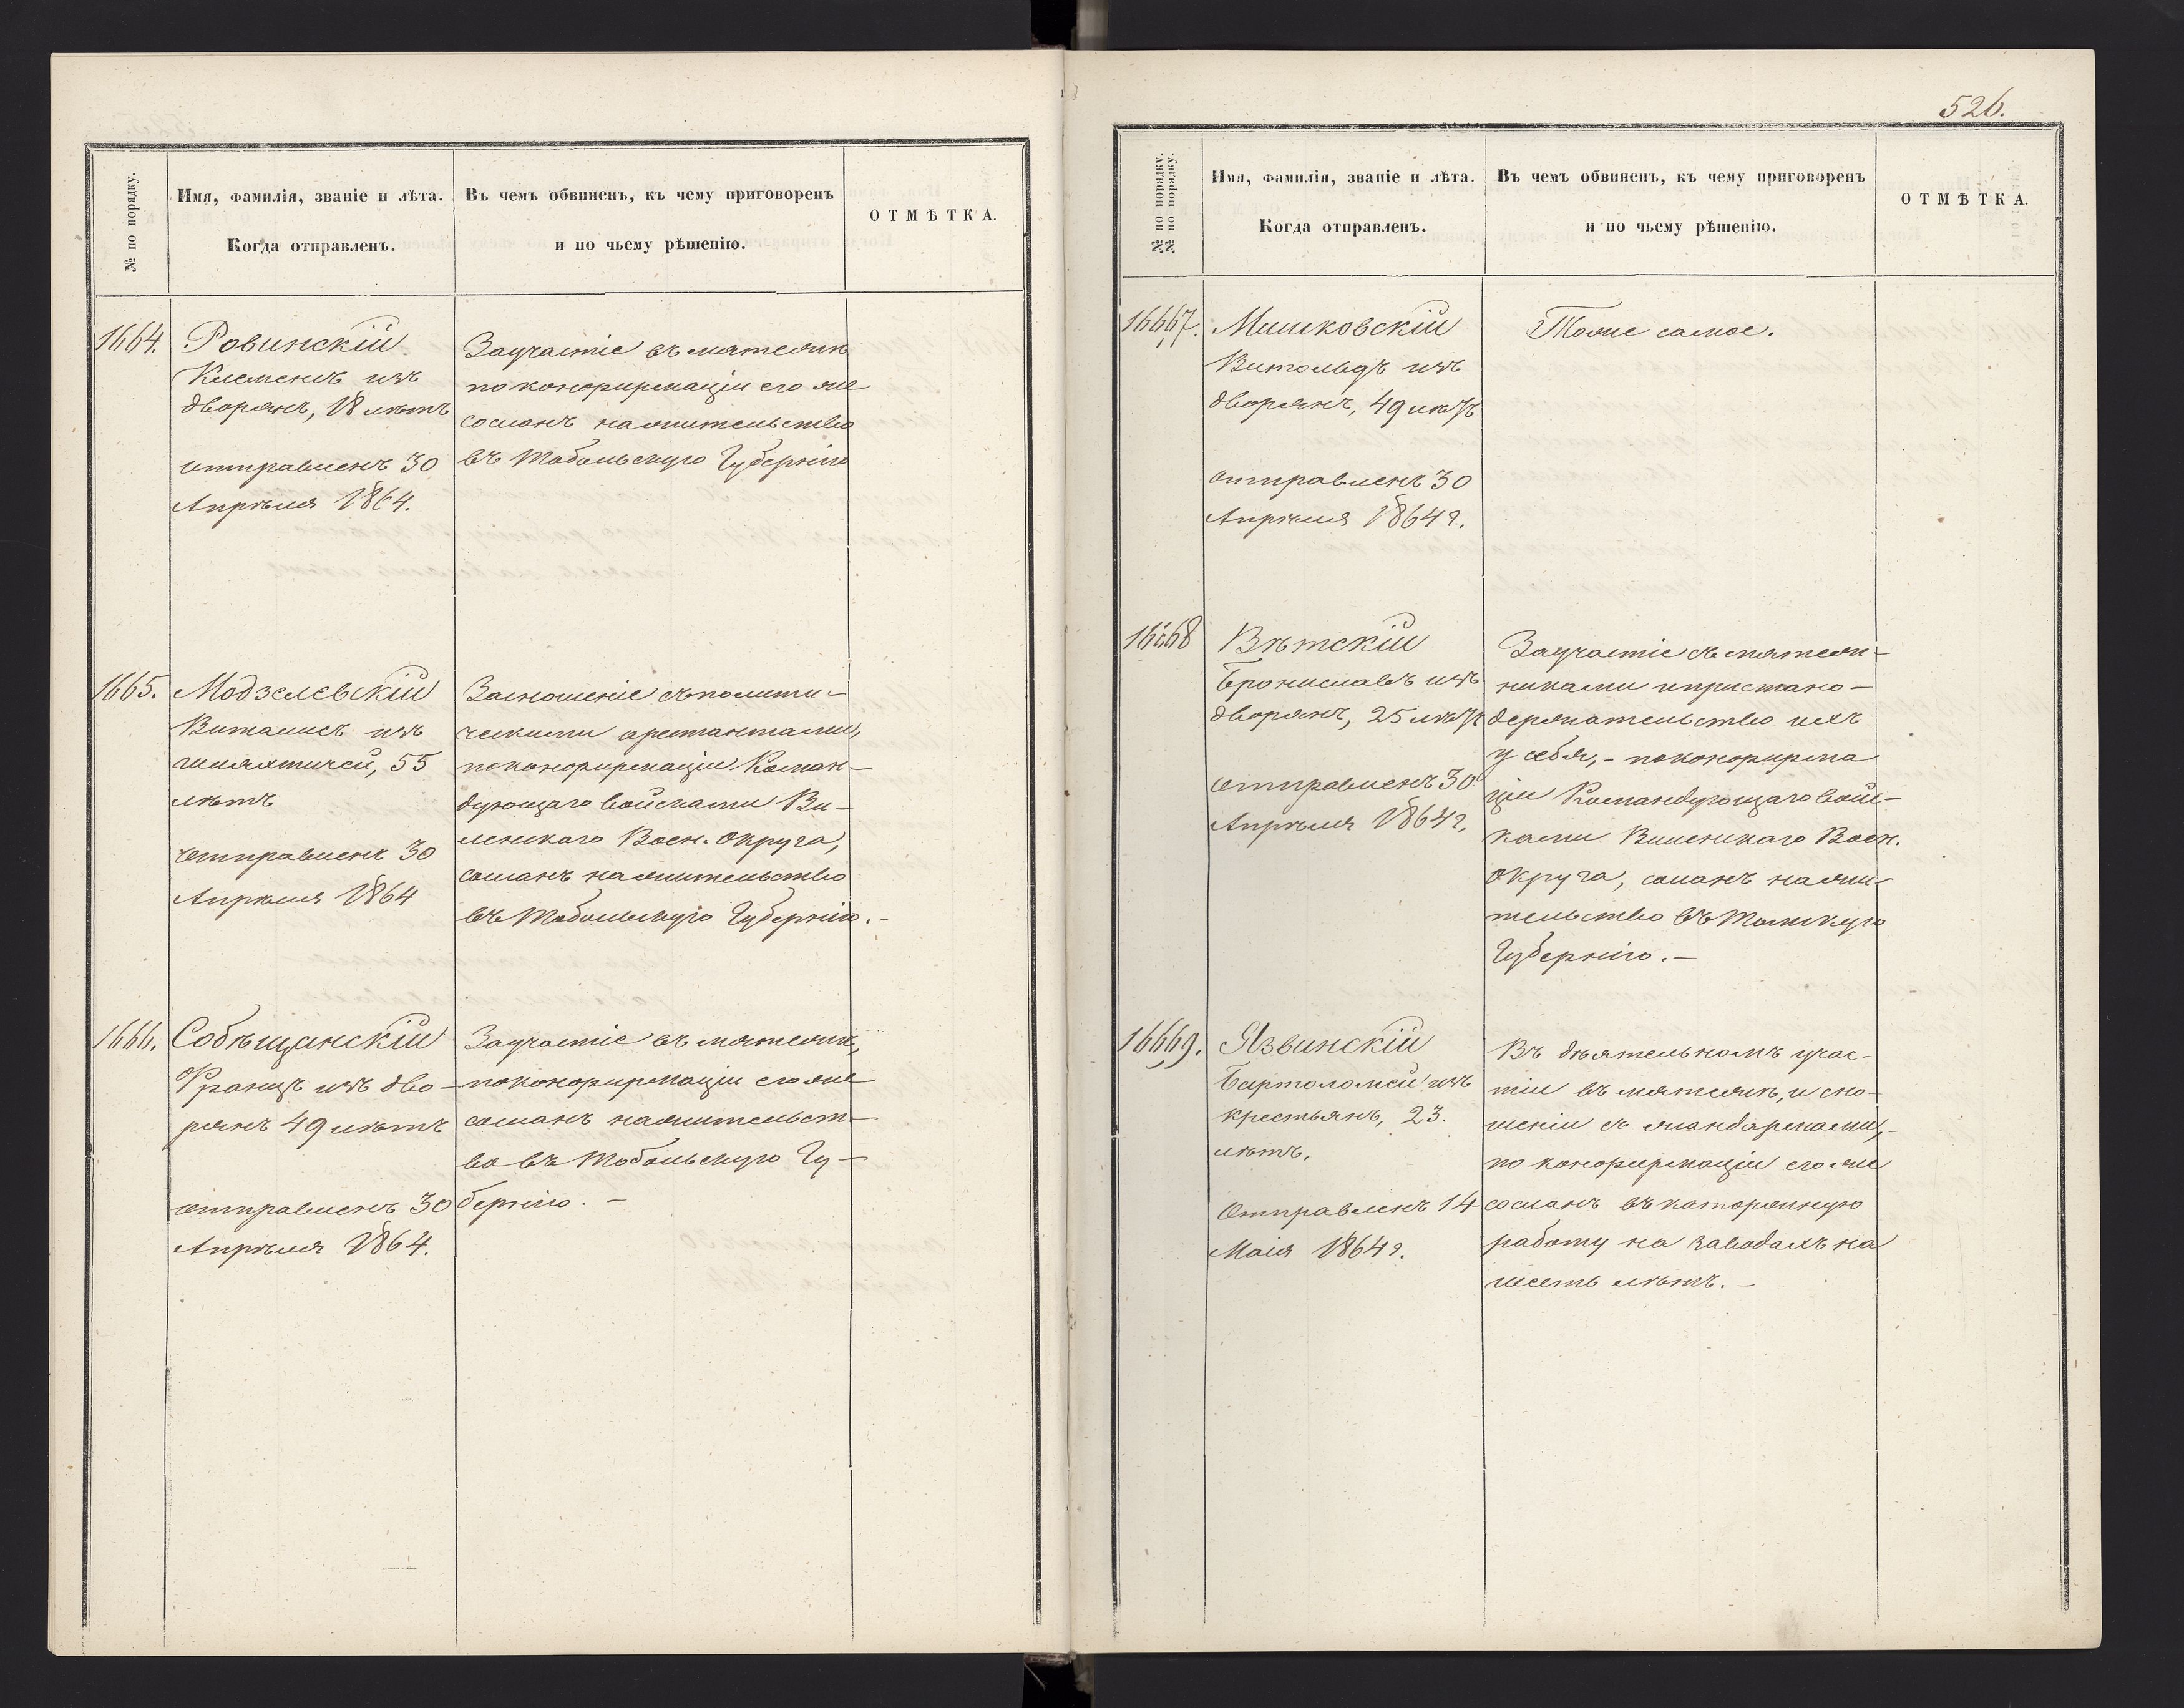 № по порядку.
Имя, фамилія, званіе и лѣта.
Когда отправленъ.
Въ чемъ обвиненъ, къ чему приговоренъ
и по чьему рѣшенію.
ОТМѢТКА.
1664.
Ровинскій
Клеменсъ изъ
дворянъ, 18 лѣтъ
отправленъ 30
Апрѣля 1864.
За участіе въ мятежѣ
по конфирмаціи его же
сосланъ на жительство
въ Тобольскую Губернію
1665.
Модзелевскій
Виталисъ изъ
шляхтичей, 55
лѣтъ
отправленъ 30
Апрѣля 1864
За сношеніе съ полити-
ческими арестантами,
по конфирмаціи Коман-
дующаго войсками Ви-
ленскаго Воен. Округа,
сосланъ на жительство
въ Тобольскую Губернію.-
1666.
Собѣщанскій
Францъ изъ дво-
рянъ 49 лѣтъ
отправленъ 30
Апрѣля 1864.
За участіе въ мятежѣ,
по конфирмаціи его же
сосланъ на жительст-
во въ Тобольскую Гу-
бернію. -
526.
№ по порядку.
№ по порядку.
Имя, фамилія, званіе и лѣта.
Когда отправленъ.
Въ чемъ обвиненъ, къ чему приговоренъ
и по чьему рѣшенію.
ОТМѢТКА.
16667.
Мишковскій
Витольдъ изъ
дворянъ, 49 лѣтъ
отправленъ 30
Апрѣля 1864 г.
Тоже самое.
16668
Вѣтскій
Брониславъ изъ
дворянъ, 25 лѣтъ
отправленъ 30
Апрѣля 1864 г.
За участіе съ мятеж-
никами и пристано-
держательство ихъ
у себя, - по конфирма
ціи Командующаго войс-
ками Виленскаго Воен.
Округа, сосланъ на жи-
тельство въ Томскую
Губернію. -
16669.
Язвинскій
Бартоломей изъ
крестьянъ, 23.
лѣтъ.
Отправленъ 14
Маія 1864 г.
Въ дѣятельномъ учас-
тіи въ мятежѣ, и сно-
шеніи съ жандармами,-
по конфирмаціи его же
сосланъ въ каторжную
работу на заводахъ на
шесть лѣтъ. -